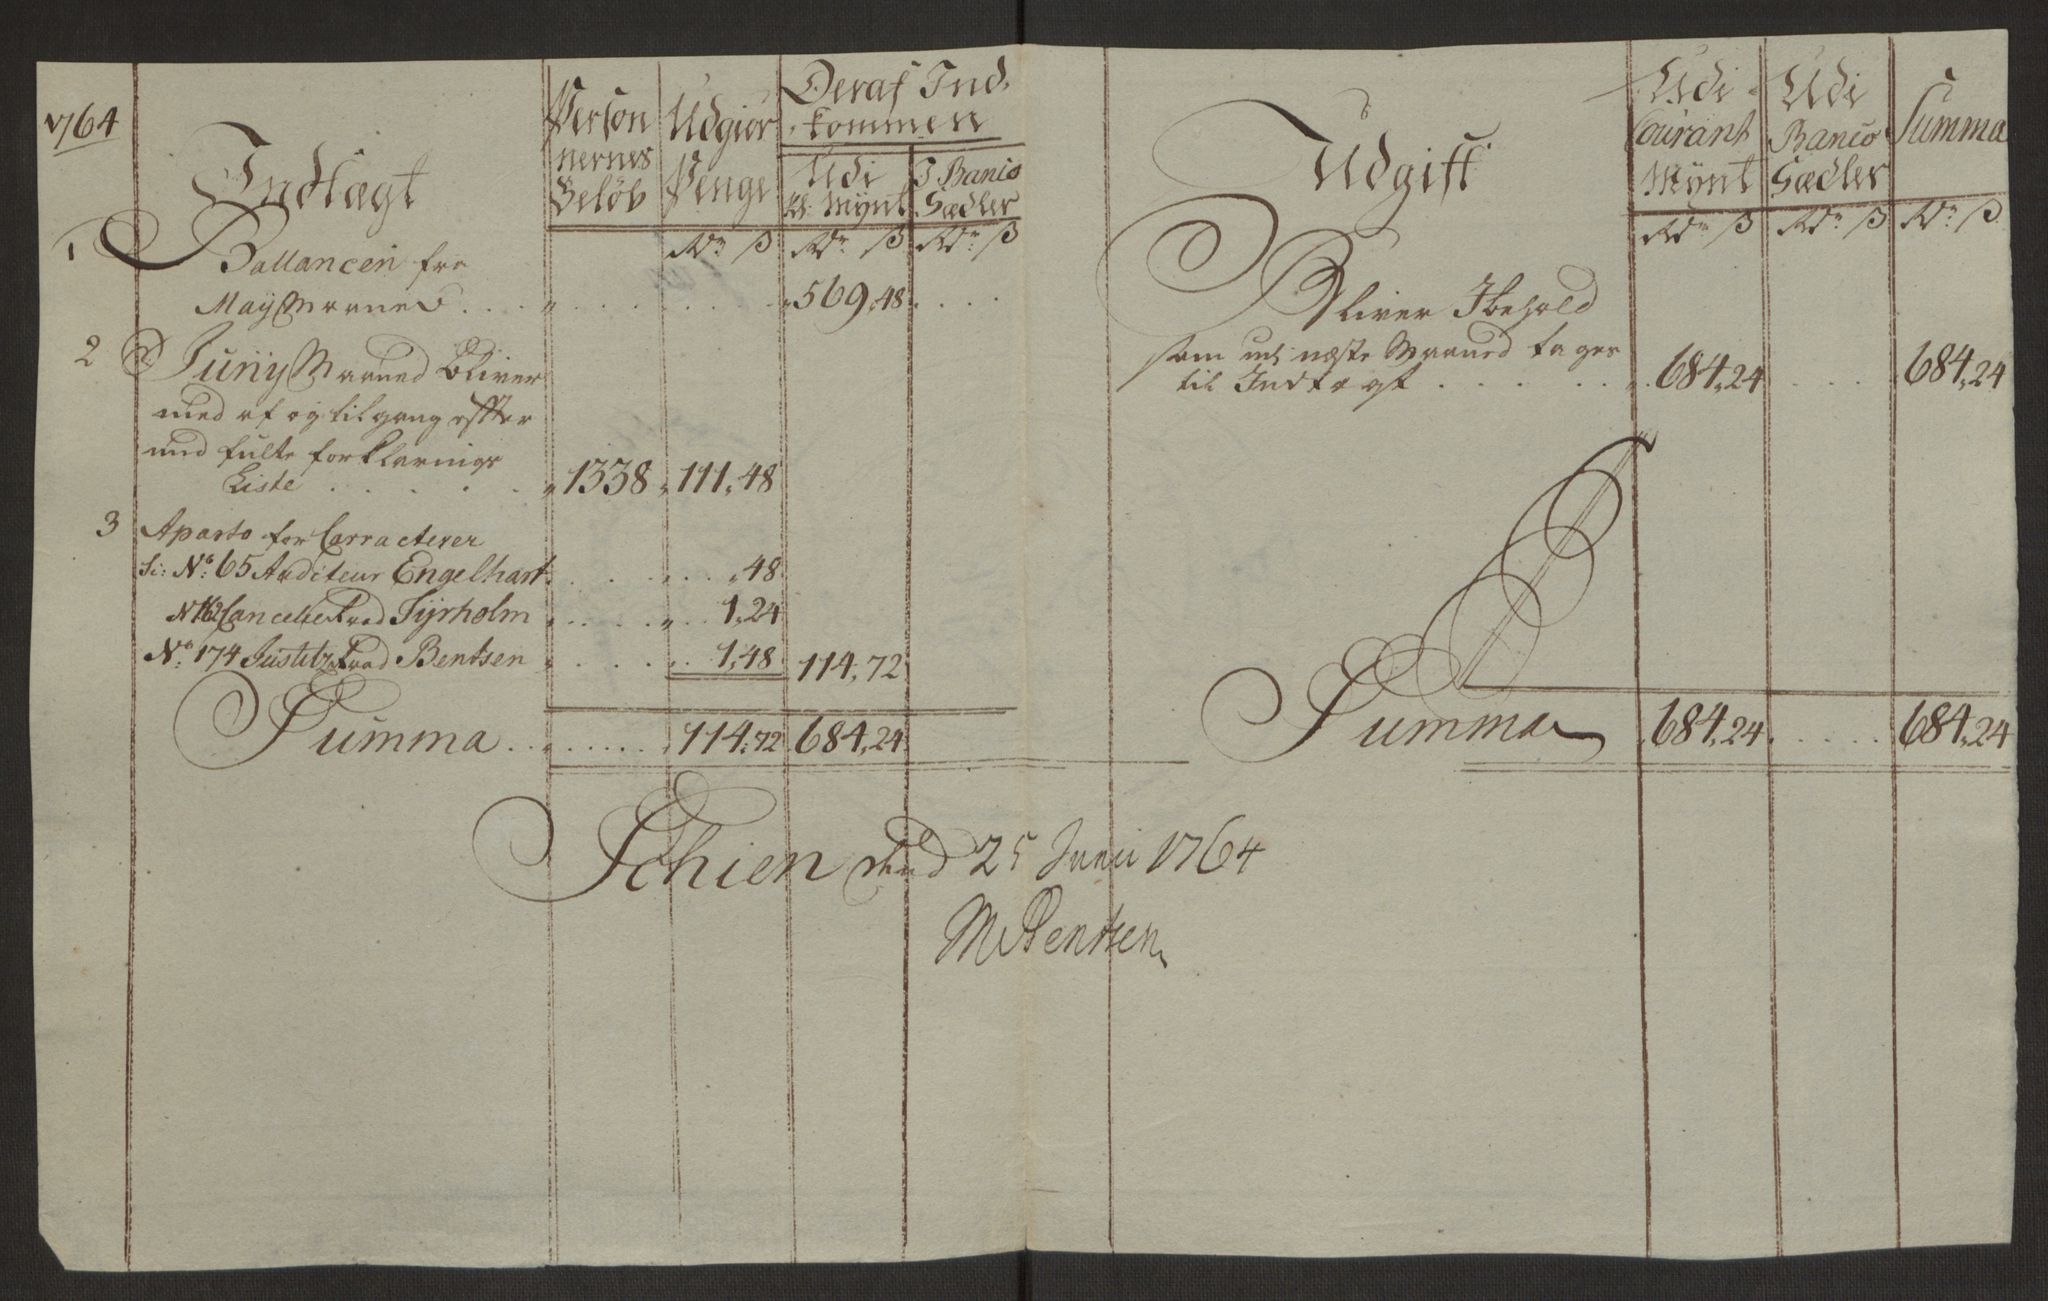 1764
Indtægt
Person
nernes
Beløb
Udgiør
Penge
Deraf Ind-
kommen
Udi
Kl: Mynt
I Banco
Sædler
Rdr ß Rdr ß Rdr ß
1 Ballancen fra
May Maaned . . . . 569,48
2 Juny Maaned Bliver
med af og tilgang efter
forklarings
Liste . . . . . 1338 111,48
3 Aparto for Carracterer
Si: No: 65 Auditeur Engelhart . . . . 48
No 162 Cancellie Raad Tyrholm . . . . 1,24
No: 174 Justitz Raad Bentsen . . . . 1,48 114,72
Summa . . . . . . . 114,72 684,24
Udgift
Udi
Courant
Mynt
Udi
Banco
Sædler
Summa
Rdr ß Rdr ß Rdr ß
Bliver Ibehold
som udi næste Maaned tages
til Indtægt . . . . . 684,24 . . . 684,24
Summa 684,24 . . . . . 684,24
Schien den 25 Junii 1764
M Bentsen